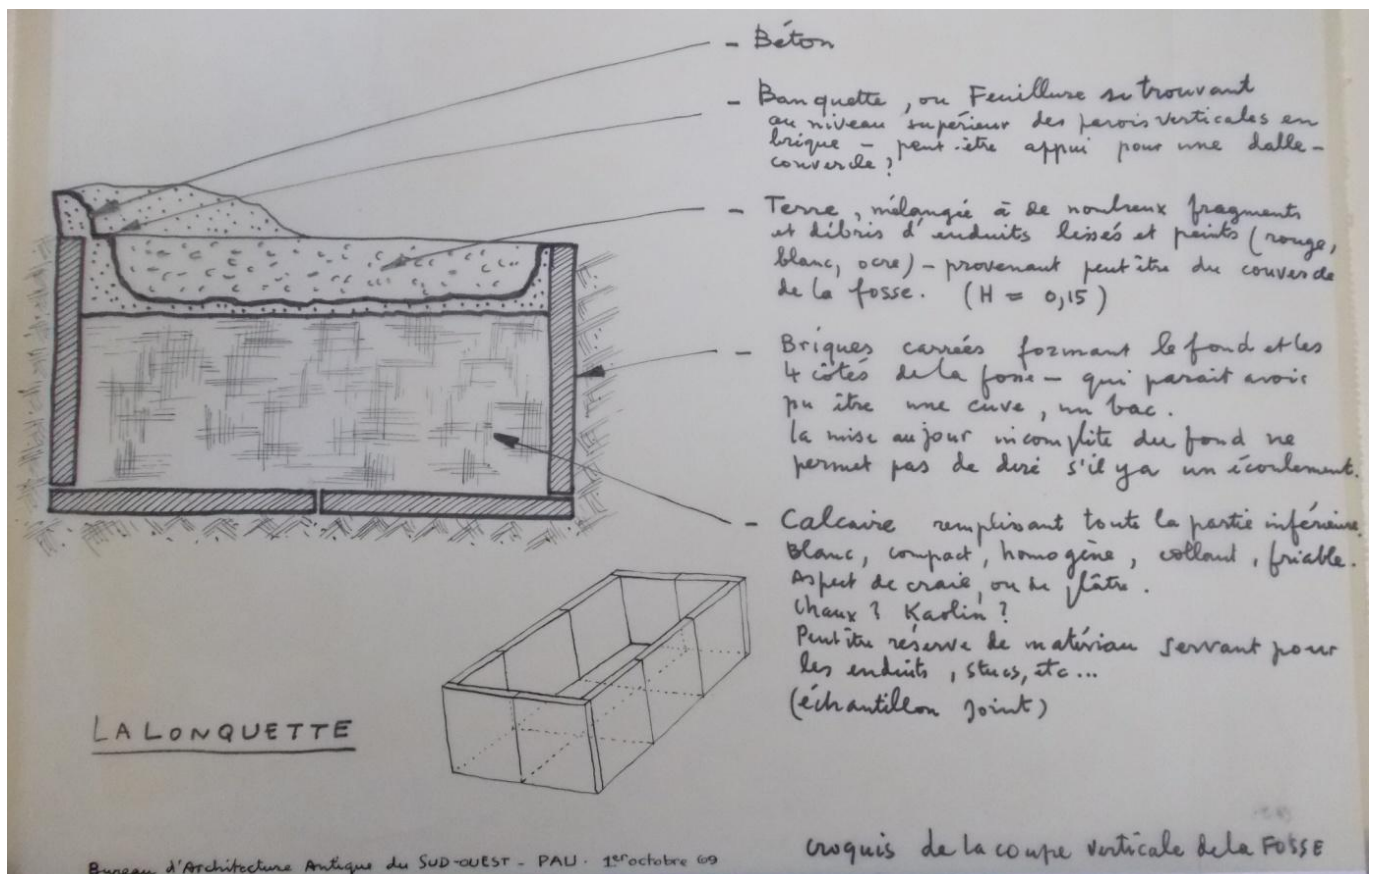 - Béton
- Banquette, ou Feuillure se trouvant
au niveau supérieur des parois verticales en
brique - peut-être appui pour une dalle-
couvercle ?
- Terre, mélangée à de nombreux fragments
et débris d'enduits lissés et peints (rouge,
blanc, ocre) - provenant peut être du couvercle
de la fosse. (H = 0,15)
- Briques carrées formant le fond et les
4 côtés de la fosse - qui parait avoir
pu être une cuve, un bac.
la mise au jour incomplète du fond ne
permet pas de dire s'il y a un écoulement.
- Calcaire remplissant toute la partie inférieure.
Blanc, compact, homogène, collant, friable.
Aspect de craie, ou de plâtre.
Chaux ? Kaolin ?
Peut être réserve de matériau servant pour
les enduits, stucs, etc...
(échantillon joint)
LALONQUETTE
croquis de la coupe verticale de la FOSSE
Bureau d'Architecture Antique du SUD-OUEST - PAU. 1er octobre 69